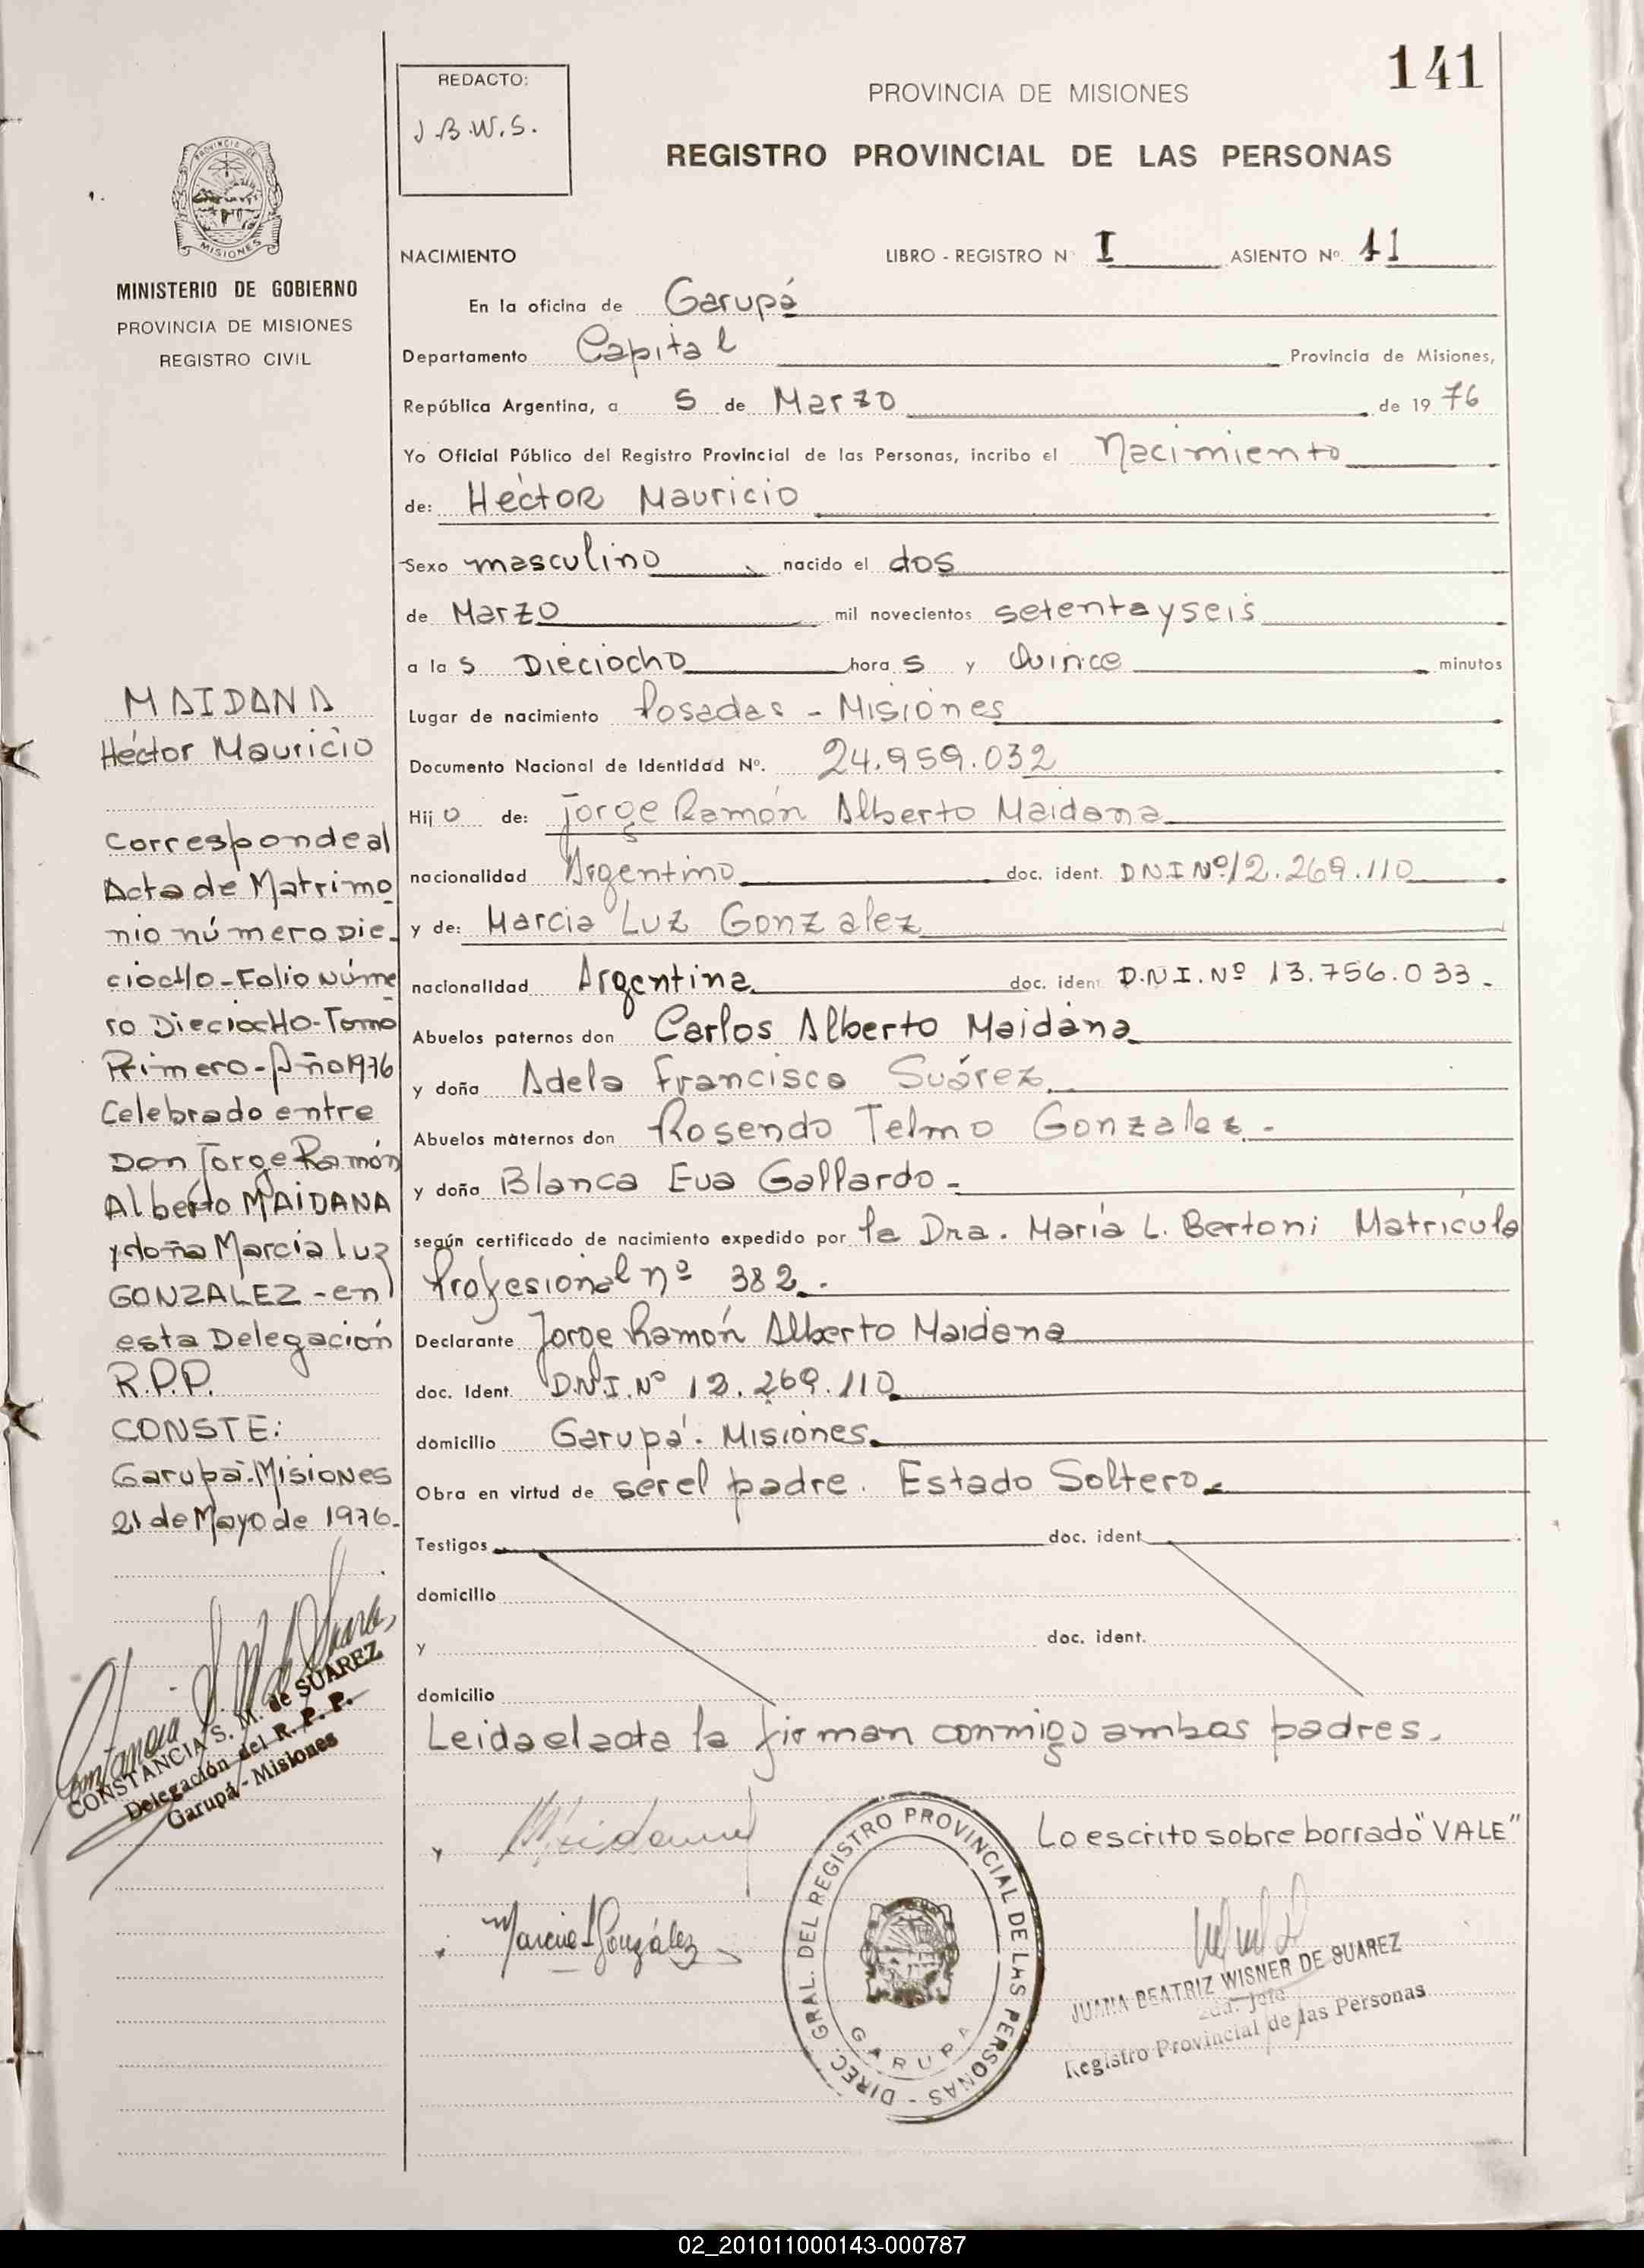 141
REDACTO:
J.B.W.S.
PROVINCIA DE MISIONES
REGISTRO PROVINCIAL DE LAS PERSONAS
PROVINCIA DE
MISIONES
MINISTERIO DE GOBIERNO
PROVINCIA DE MISIONES
REGISTRO CIVIL
MAIDANA
Héctor Mauricio
Corresponde al
Acta de Matrimo
nio número Die_
ciocHo-Folio Núme
ro DieciocHo-Tomo
Primero-Año 1976
Celebrado entre
Don Jorge Ramón
Alberto MAIDANA
y doña Marcia Luz
GONZALEZ-en
esta Delegación
R.P.P.
CONSTE:
Garupá-Misiones
21 de Mayo de 1976.
CONSTANCIA S. M. de SUAREZ
Delegación del R. P. P.
Garupá - Misiones
NACIMIENTO LIBRO - REGISTRO N° I ASIENTO Nº 41
En la oficina de Garupá
Departamento Capital Provincia de Misiones,
República Argentina, a 5 de Marzo de 1976
Yo Oficial Público del Registro Provincial de las Personas, incribo el Nacimiento
de: Héctor Mauricio
Sexo masculino, nacido el dos
de Marzo mil novecientos setenta y seis
a las Dieciocho horas y Quince minutos
Lugar de nacimiento Posadas - Misiones
Documento Nacional de Identidad Nº. 24.959.032
Hijo de: Jorge Ramón Alberto Maidana
nacionalidad Argentino doc. ident. DNI Nº 12.269.110
y de: Marcia Luz Gonzalez
nacionalidad Argentina doc. ident D.N.I. Nº 13.756.033.-
Abuelos paternos don Carlos Alberto Maidana
y doña Adela Francisca Suárez
Abuelos maternos don Rosendo Telmo Gonzalez.-
y doña Blanca Eva Gallardo-
según certificado de nacimiento expedido por la Dra. María L. Bertoni Matricula
Profesional nº 382.-
Declarante Jorge Ramón Alberto Maidana
doc. Ident. D.N.I. Nº 12.269.110
domicilio Garupá. Misiones.
Obra en virtud de ser el padre. Estado Soltero.
Testigos doc. ident
domicilio
y doc. ident.
domicilio
Leida el acta la firman conmigo ambos padres.
Lo escrito sobre borrado "VALE"
Marcia L González
DIREC. GRAL. DEL REGISTRO PROVINCIAL DE LAS PERSONAS -
GARUPA
JUANA BEATRIZ WISNER DE SUAREZ
2da. Jefe
Registro Provincial de las Personas
02_201011000143-000787